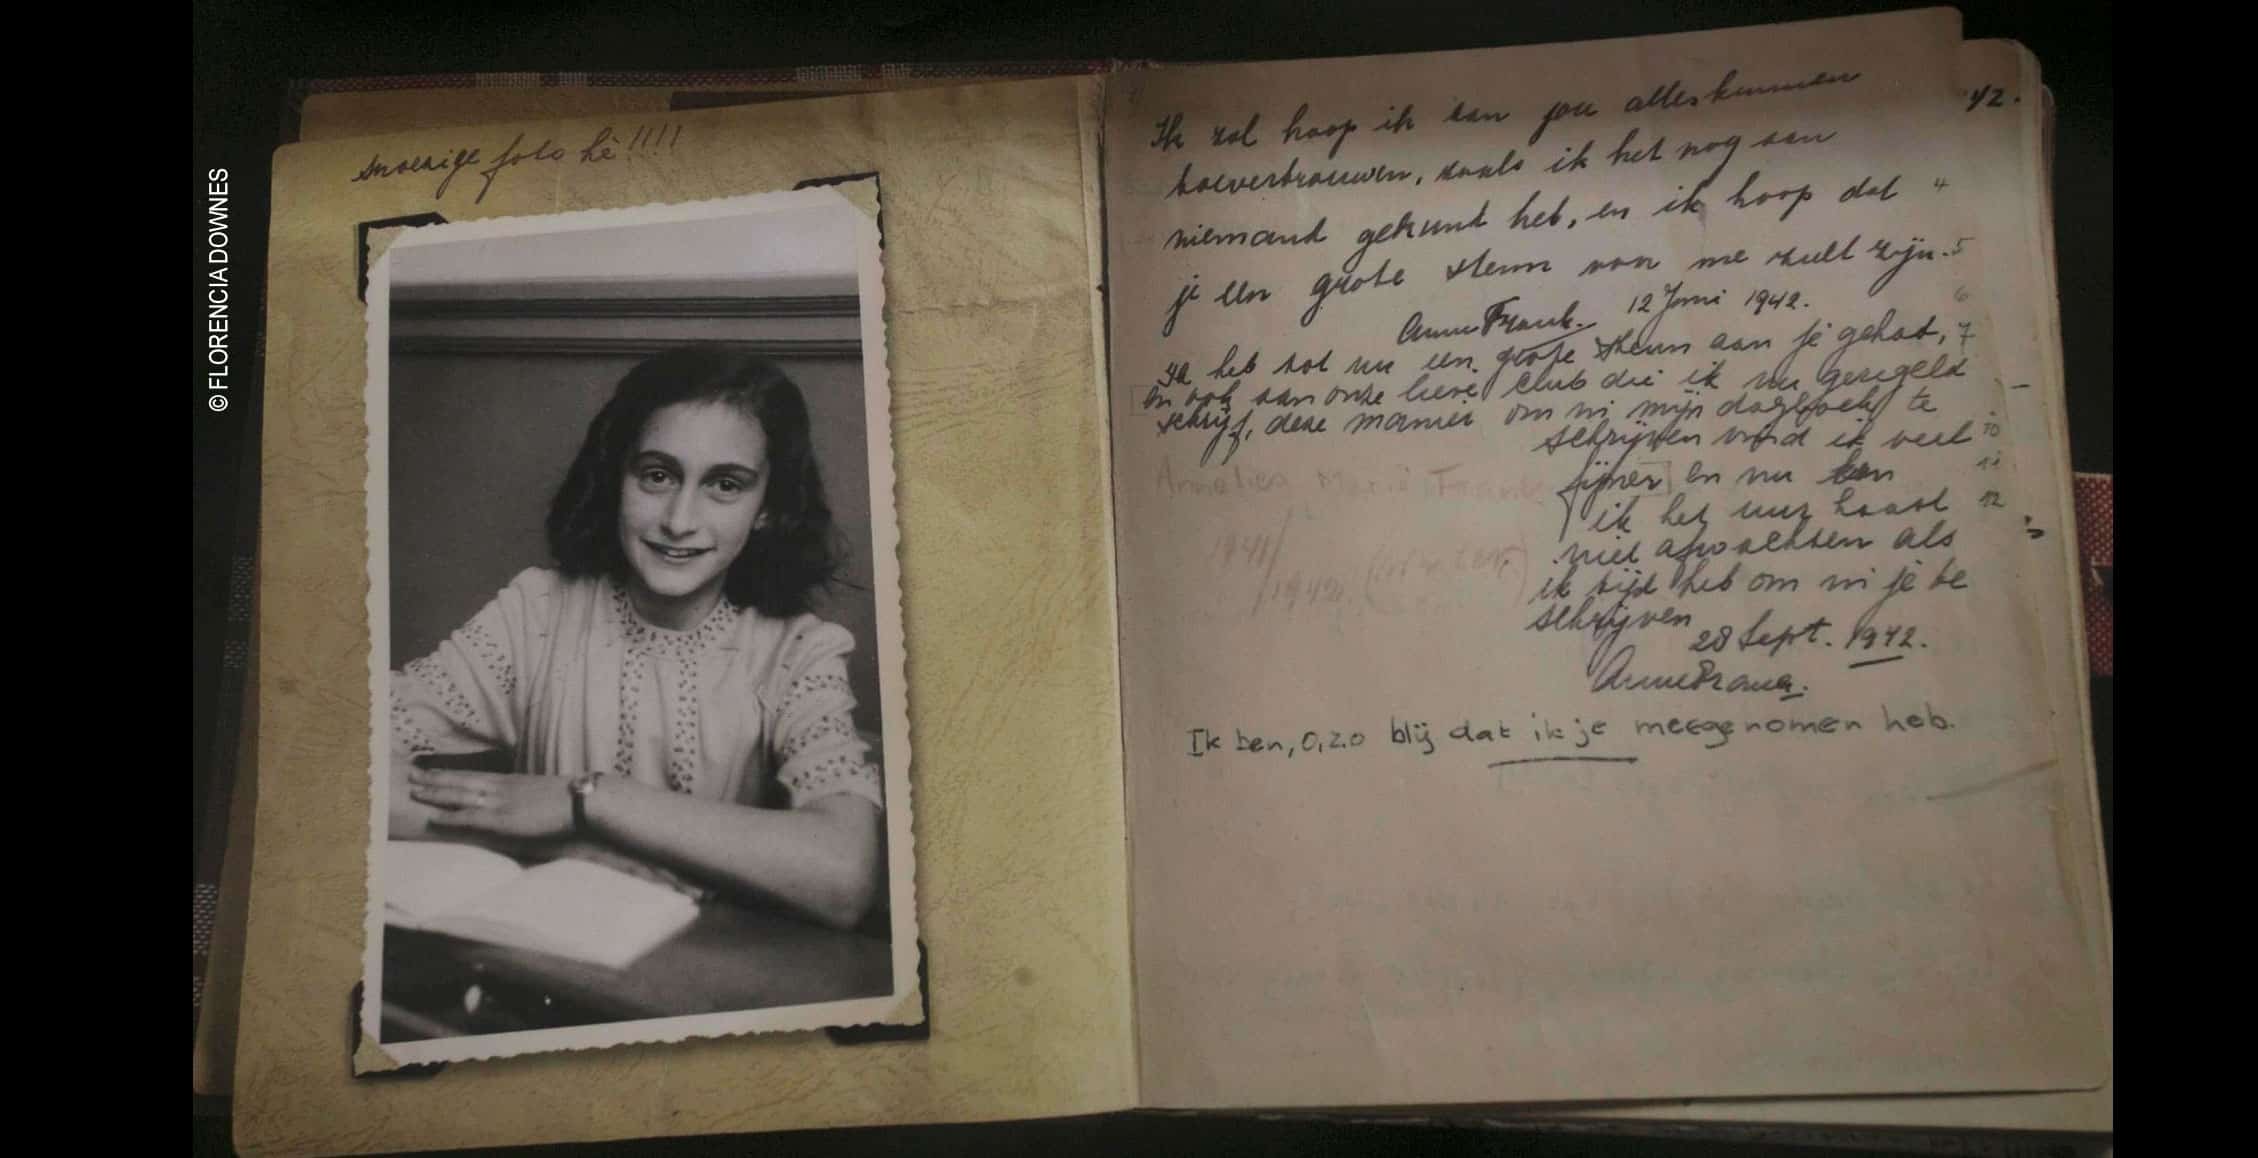 © FLORENCIA DOWNES
snoezige foto hè !!!!
42.
Ik zal hoop ik aan jou alles kunnen
toevertrouwen, zoals ik het nog aan
niemand gekund heb, en ik hoop dat 4
je een grote steun van me zult zijn. 5
Anne Frank. 12 Juni 1942. 6
Ik heb tot nu een grote steun aan je gehad, 7
en ook aan onze lieve club die ik nu geregeld
schrijf, deze manier om in mijn dagboek te
schrijven vind ik veel 10
fijner en nu kan 11
ik het uur haast 12
niet afwachten als
ik tijd heb om in je te
schrijven
28 Sept. 1942.
Anne Frank.
Annelies Marie Frank
1941/
1942.
Ik ben, o, zo blij dat ik je meegenomen heb.